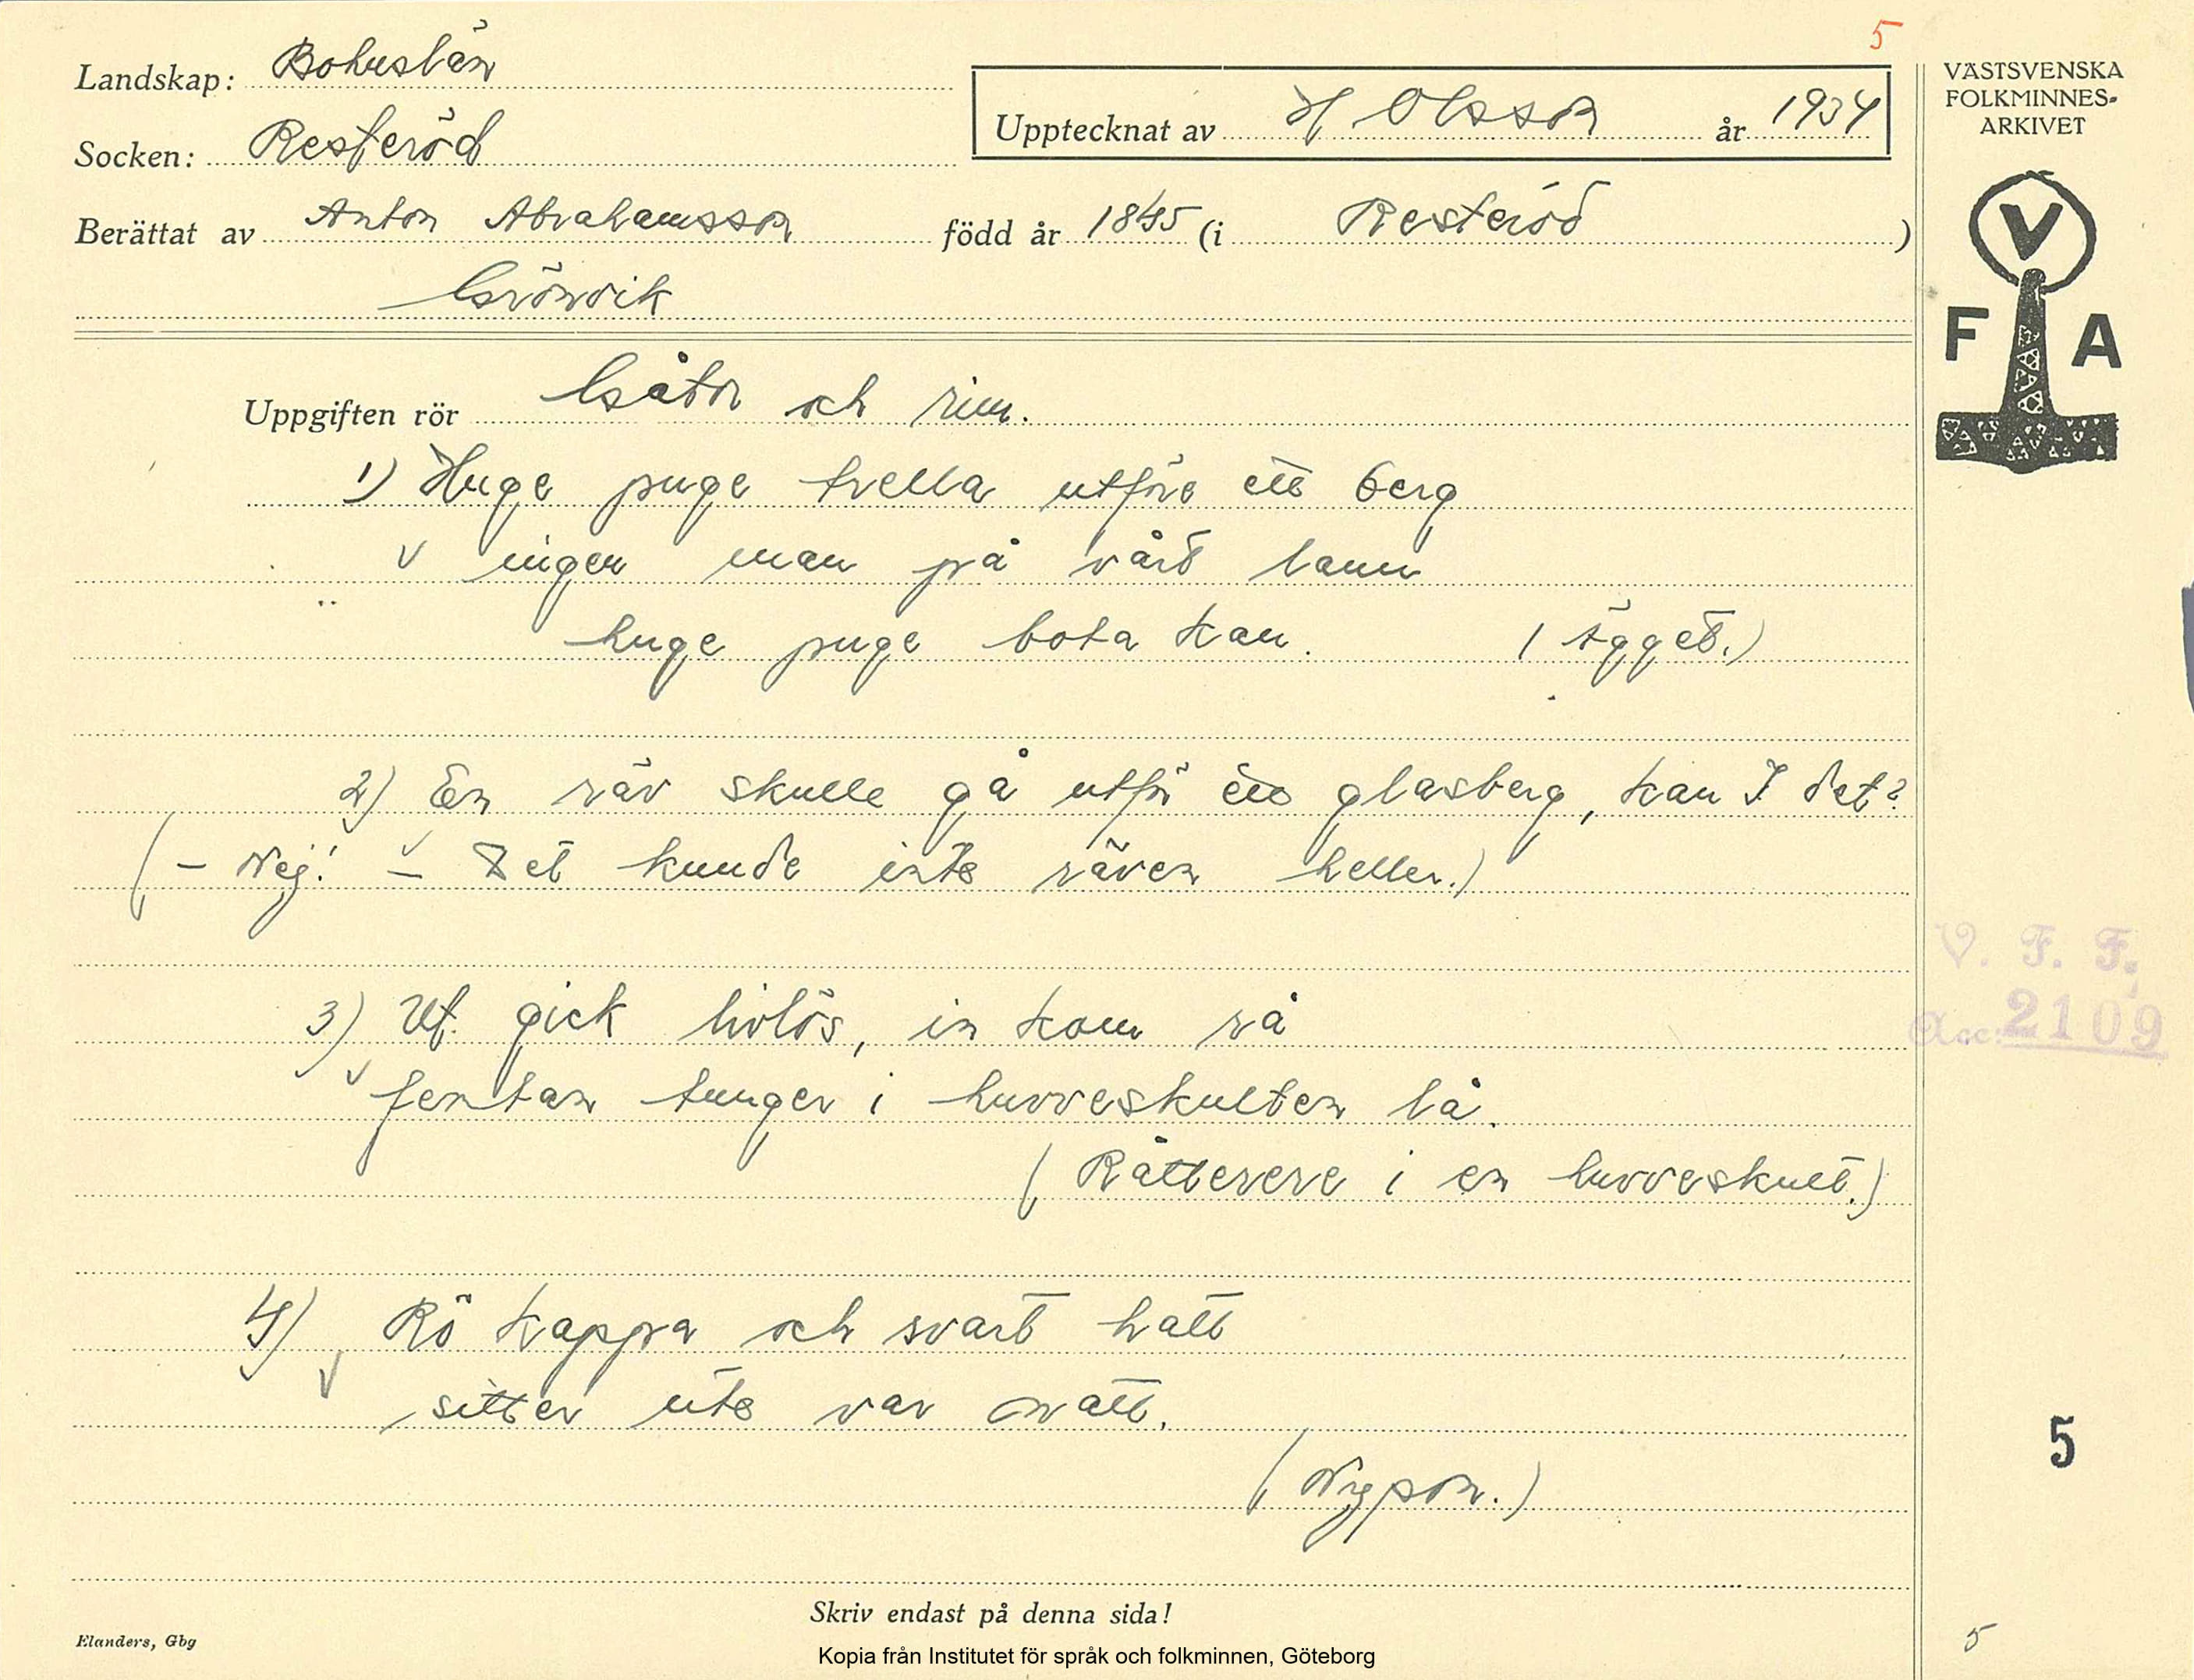 5
Landskap: Bohuslän
Upptecknat av H Olsson år 1934
Socken: Resteröd
Berättat av Anton Abrahamsson född år 1845 (i Resteröd)
Grönvik
VÄSTSVENSKA
FOLKMINNES-
ARKIVET
V
F A
Uppgiften rör Gåtor och rim.
1) Huge puge trella utföre ett berg
v ingen man på vårt lann
huge puge bota kan. (Ägget.)
2) En räv skulle gå utför ett glasberg, kan I det?
(- Nej! - Det kunde inte räven heller.)
3) Ut gick livlös, in kom rå
v femtan tunger i huvveskulten lå.
(Råtterere i en huvveskult.)
4) Rö kappa och svart hatt
v sitter ute var natt.
(Nypon.)
V. F. F.
Acc: 2109
5
Skriv endast på denna sida!
Elanders, Gbg
5
Kopia från Institutet för språk och folkminnen, Göteborg